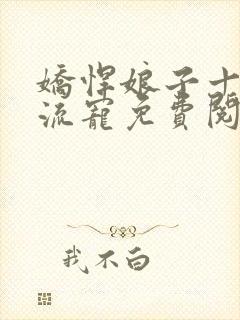 嬌悍娘子十
流寵免費閱
我不白